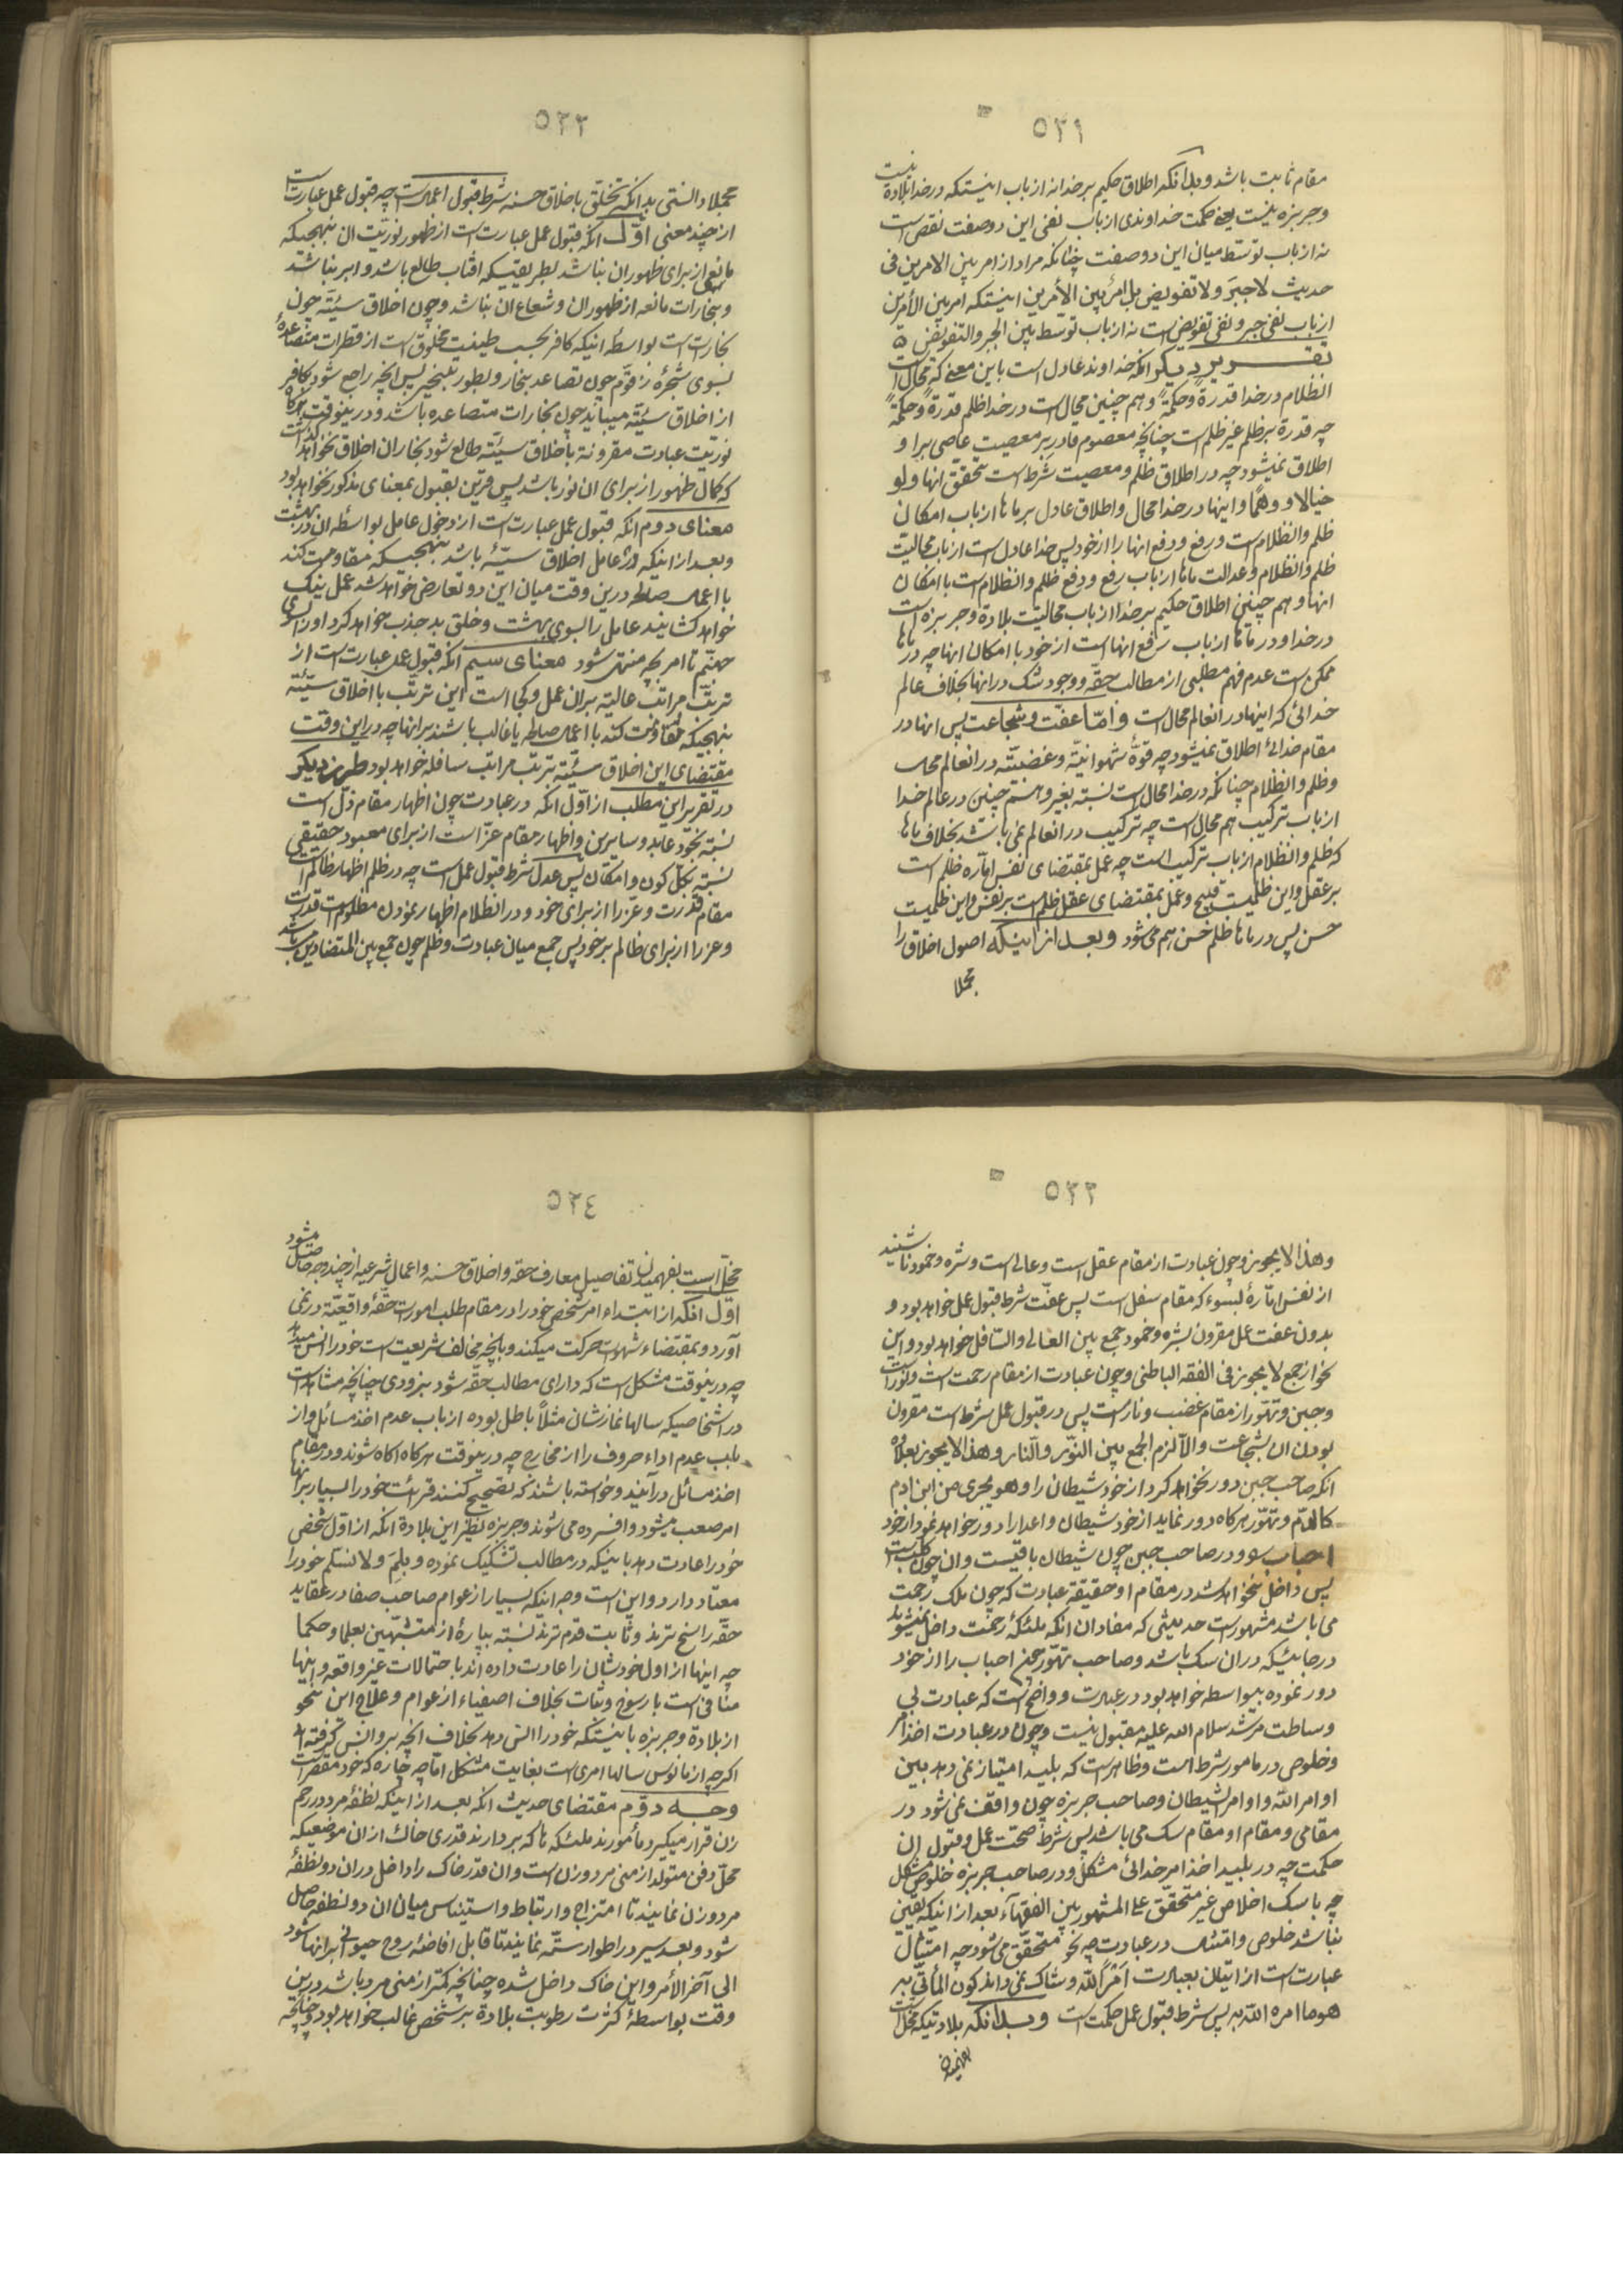 ٥٣١
مقام ثابت باشد و بدانکه اطلاق حکیم بر خدا نه از باب اینستکه در خدا بلادة نیست
و جربزه نیست یعنی حکمت خداوندی از باب نفی این دو صفت نقص است
نه از باب توسّط میان این دو صفت چنانکه مراد از امر بین الامرین فی
حدیث لا جبرَ و لا تفویض بل امرٌ بین الأمرین اینستکه امر بین الأمرین
از باب نفی جبر و نفی تفویض است نه از باب توسّط بین الجبر والتفویض
تقریر دیگر آنکه خداوند عادل است باین معنی که محال است
انظلام در خدا قدرةً وحکمةً و هم چنین محال است در خدا ظلم قدرةً وحکمةً
چه قدرة بر ظلم غیر ظلم است چنانچه معصوم قادر بر معصیت عاصی بر او
اطلاق نمیشود چه در اطلاق ظلم و معصیت شرط است تحقق آنها ولو
خیالا و وهمًا و اینها در خدا محال و اطلاق عادل بر ماها از باب امکان
ظلم وانظلام است و رفع و دفع آنها را از خود پس خدا عادل است از باب محالیّت
ظلم وانظلام و عدالت ماها از باب رفع و دفع ظلم وانظلام است با امکان
آنها و هم چنین اطلاق حکیم بر خدا از باب محالیّت بلادة و جربزه است
در خدا و در ماها از باب رفع آنها است از خود با امکان آنها چه در ماها
ممکن است عدم فهم مطلبی از مطالب حقّه و وجود شک در آنها بخلاف عالم
خدائی که اینها در آنعالم محال است و امّا عفّت و شجاعت پس آنها در
مقام خدائی اطلاق نمیشود چه قوّهٔ شهوانیّه و غضبیّه در آنعالم محال
وظلم وانظلام چنانکه در خدا محال است نسبة بغیر و هم چنین در عالم خدا
از باب ترکیب هم محال است چه ترکیب در آنعالم نمی باشد بخلاف ماها
که ظلم وانظلام از باب ترکیب است چه عمل بمقتضای نفس امّاره ظلم است
بر عقل و این ظلمیت قبیح و عمل بمقتضای عقل ظلم است بر نفس و این ظلمیت
حسن پس در ماها ظلم حَسن هم می شود و بعد از اینکه اصول اخلاق را
مجملا
٥٣٢
مجملا دانستی بدانکه تخلّق باخلاق حسنه شرط قبول اعمال است چه قبول عمل عبارت است
از چند معنی اوّل آنکه قبول عمل عبارت است از ظهور نوریّت آن بنهجیکه
مانعی از برای ظهور آن نباشد بطریقیکه آفتاب طالع باشد و ابر نباشد
و بخارات مانعه از ظهور آن و شعاع آن نباشد و چون اخلاق سیّئه چون
بخارات است بواسطه اینکه کافر بحسب طینت مخلوق است از قطرات متصاعدهٔ
بسوی شجرهٔ زقوّم چون تصاعد بخار و بطور تبخیر پس آنچه راجع شود بکافر
از اخلاق سیّئه میباید چون بخارات متصاعده باشد و در ینوقت هرگاه
نوریّت عبادت مقرونة باخلاق سیّئه طالع شود بخار آن اخلاق نخواهد گذاشت
که کمال ظهور از برای آن نور باشد پس قرین بقبول بمعنای مذکور نخواهد بود
معنای دوم آنکه قبول عمل عبارت است از دخول عامل بواسطه آن در بهشت
وبعد از اینکه در عامل اخلاق سیّئه باشد بنهجیکه مقاومت کند
با اعمال صالحه در ین وقت میان این دو تعارض خواهد شد عمل نیک
خواهد کشانید عامل را بسوی بهشت و خلق بد جذب خواهد کرد او را بسوی
جهنّم تا امر بچه منتهی شود معنای سیم آنکه قبول عمل عبارت است از
ترتّب مراتب عالیة بر آن عمل و کجا است این ترتّب با اخلاق سیّئه
بنهجیکه مقاومت کند با اعمال صالحه یا غالب باشند بر آنها چه در این وقت
مقتضای این اخلاق سیّئه ترتّب مراتب سافله خواهد بود طرز دیگر
در تقریر این مطلب از اوّل آنکه در عبادت چون اظهار مقام ذلّ است
نسبة بخود عابد و سایرین و اظهار مقام عزّ است از برای معبود حقیقی
نسبة بکلّ کون و امکان پس عدل شرط قبول عمل است چه در ظلم اظهار ظالم است
مقام قدرت و عزّ را از برای خود و در انظلام اظهار نمودن مظلوم است قدرت
و عزّ را از برای ظالم بر خود پس جمع میان عبادت و ظلم چون جمع بین المتضادین میباشد
٥٣٣
وهذا لا یجوز و چون عبادت از مقام عقل است و عالی است و شره و خمود ناشیند
از نفس امّارهٔ بسوء که مقام سفل است پس عفّت شرط قبول عمل خواهد بود و
بدون عفت عمل مقرون بشره و خمود جمع بین العالی والسّافل خواهد بود و این
نحو از جمع لا یجوز فی الفقه الباطنی و چون عبادت از مقام رحمت است و نور است
و جبن و تهوّر از مقام غضب و نار است پس در قبول عمل شرط است مقرون
بودن آن بشجاعت والّا لزم الجمع بین النّور والنّار وهذا لا یجوز بعلاوه
آنکه صاحب جبن دور نخواهد کرد از خود شیطان را و هو یجری من ابن آدم
کالدّم و تهوّر هرگاه دور نماید از خود شیطان و اعدا را دور خواهد نمود از خود
احباب را و در صاحب جبن چون شیطان باقیست و آن چون کلب است
پس داخل نخواهد شد در مقام او حقیقة عبادت که چون ملک رحمت
می باشد مشهور است حدیثی که مفاد آن آنکه ملئکهٔ رحمت داخل نمیشوند
در جائیکه در آن سک باشد و صاحب تهوّر چون احباب را از خود
دور نموده بیواسطه خواهد بود در عبادت و واضح است که عبادت بی
وساطت مرشد سلام الله علیه مقبول نیست و چون در عبادت اخذ امر
و خلوص در مامور شرط است و ظاهر است که بلید امتیاز نمی دهد بین
اوامر اللّه و اوامر الشیطان و صاحب جربزه چون واقف نمی شود در
مقامی و مقام او مقام شک می باشد پس شرط صحّت عمل و قبول آن
حکمت چه در بلید اخذ امر خدائی مشکل و در صاحب جربزه خلوص مشکل
چه با شک اخلاص غیر متحقّق علی المشهور بین الفقهآء بعد از اینکه یقین
نباشد خلوص و امتثال در عبادت چه نحو متحقّق می شود چه امتثال
عبارت است از اتیان بعبادت اَمْراً للّه و شاک نمی داند کون المأتیّ به
هو ما امره اللّه به پس شرط قبول عمل حکمت است و بدانکه بلادتیکه مخلّ است
بفهمیدن
٥٣٤
مخلّ است بفهمیدن تفاصیل معارف حقه و اخلاق حسنه و اعمال شرعیه از چند وجه حاصل میشود
اوّل آنکه از ابتداء امر شخص خود را در مقام طلب امورات حقّهٔ واقعیّه در نمی
آورد و بمقتضاء شهوات حرکت میکند و بآنچه مخالف شریعت است خود را انس میدهد
چه در ینوقت مشکل است که دارای مطالب حقه شود بزودی چنانچه مشاهد است
در اشخاصیکه سالها نمازشان مثلاً باطل بوده از باب عدم اخذ مسائل و از
باب عدم اداء حروف را از مخارج چه در ینوقت هرگاه آگاه شوند و در مقام
اخذ مسائل در آیند و خواسته باشند که تصحیح کنند قرائت خود را بسیار بر آنها
امر صعب میشود و افسرده می شوند و جربزه نظیر این بلادة آنکه از اوّل شخص
خود را عادت دهد باینکه در مطالب تشکیک نموده و بِلِمَ و لا نسلّم خود را
معتاد دارد و این است وجه اینکه بسیار از عوام صاحب صفا در عقاید
حقّه راسخ ترند و ثابت قدم ترند نسبة بپارهٔ از متشبّهین بعلما و حکما
چه اینها از اول خودشان را عادت داده اند باحتمالات غیر واقعه و اینها
منافی است با رسوخ و ثبات بخلاف اصفیاء از عوام و علاج این نحو
از بلادة و جربزه باینستکه خود را انس دهد بخلاف آنچه بر او انس گرفته اند
اگرچه از مانوس سالها امری است بغایت مشکل امّا چه چاره که خود مقصر است
وجه دوّم مقتضای حدیث آنکه بعد از اینکه نطفهٔ مرد در رحم
زن قرار میگیرد مأمورند ملئکه ها که بردارند قدری خاک از آن موضعیکه
محلّ دفن متولد از منی مرد و زن است و آن قدر خاک را داخل در آن دو نطفهٔ
مرد و زن نمایند تا امتزاج و ارتباط و استیناس میان آن دو نطفه حاصل
شود و بعد سیر در اطوار ستّه نمایند تا قابل افاضهٔ روح حیوانی بر آنها شود
الی آخر الأمر و این خاک داخل شده چنانچه کمتر از منی مرد باشد در ین
وقت بواسطهٔ کثرت رطوبت بلادة بر شخص غالب خواهد بود و چنانچه